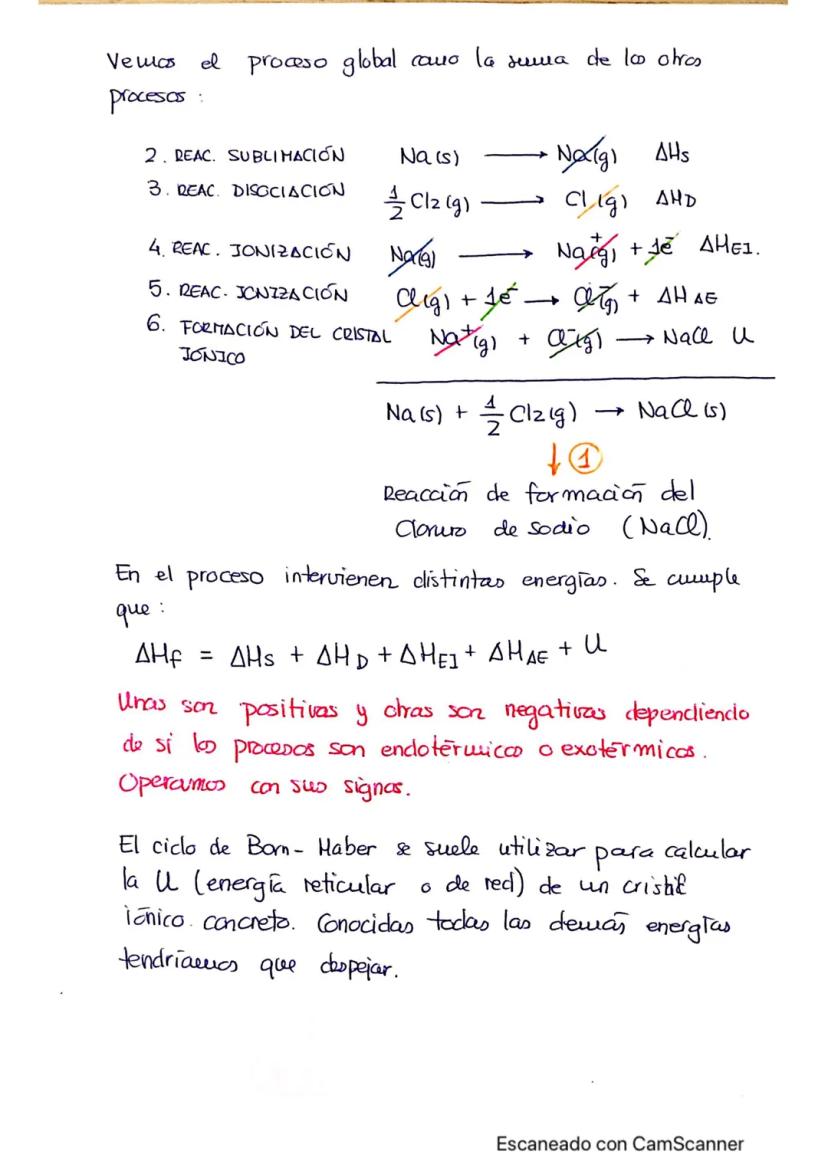 Vemos el proceso global como la suma de los otros
procesos :
2. REAC. SUBLIMACIÓN Na (s) ⟶ Na(g) ΔHs
3. REAC. DISOCIACIÓN 1/2 Cl2 (g) ⟶ Cl (g) ΔHD
4. REAC. IONIZACIÓN Na(g) ⟶ Na+(g) + 1e- ΔHEI.
5. REAC. IONIZACIÓN Cl(g) + 1e- ⟶ Cl-(g) + ΔHAE
6. FORMACIÓN DEL CRISTAL Na+(g) + Cl-(g) ⟶ NaCl U
IÓNICO
Na (s) + 1/2 Cl2 (g) → NaCl (s)
↓ ①
Reacción de formación del
Cloruro de sodio (NaCl).
En el proceso intervienen distintas energías. Se cumple
que :
ΔHf = ΔHs + ΔHD + ΔHEI + ΔHAE + U
Unas son positivas y otras son negativas dependiendo
de si los procesos son endotérmicos o exotérmicos.
Operamos con sus signos.
El ciclo de Born - Haber se suele utilizar para calcular
la U (energía reticular o de red) de un cristal
iónico concreto. Conocidas todas las demás energías
tendríamos que despejar.
Escaneado con CamScanner